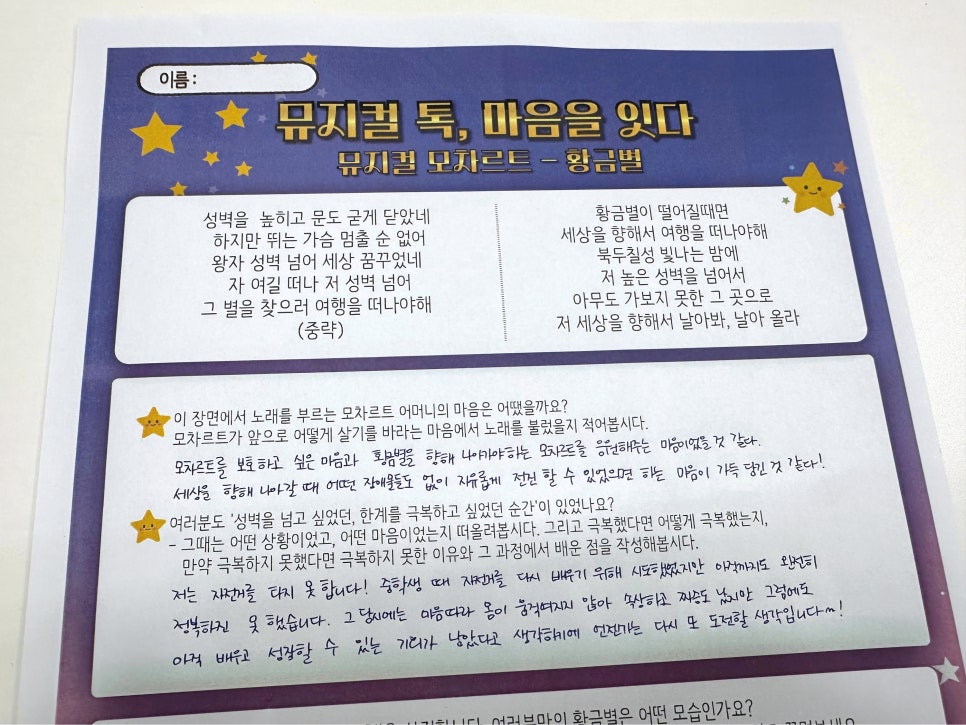 이름 :
뮤지컬 톡, 마음을 잇다
뮤지컬 모차르트 - 황금별
성벽을 높히고 문도 굳게 닫았네
하지만 뛰는 가슴 멈출 순 없어
왕자 성벽 넘어 세상 꿈꾸었네
자 여길 떠나 저 성벽 넘어
그 별을 찾으러 여행을 떠나야해
(중략)
황금별이 떨어질때면
세상을 향해서 여행을 떠나야해
북두칠성 빛나는 밤에
저 높은 성벽을 넘어서
아무도 가보지 못한 그 곳으로
저 세상을 향해서 날아봐, 날아 올라
이 장면에서 노래를 부르는 모차르트 어머니의 마음은 어땠을까요?
모차르트가 앞으로 어떻게 살기를 바라는 마음에서 노래를 불렀을지 적어봅시다.
모차르트를 보호하고 싶은 마음과 황금별을 향해 나아가야하는 모차르트를 응원해주는 마음이었을 것 같다.
세상을 향해 나아갈 때 어떤 장애물들도 없이 자유롭게 전진 할 수 있었으면 하는 마음이 가득 담긴 것 같다!
여러분도 '성벽을 넘고 싶었던, 한계를 극복하고 싶었던 순간'이 있었나요?
- 그때는 어떤 상황이었고, 어떤 마음이었는지 떠올려봅시다. 그리고 극복했다면 어떻게 극복했는지,
만약 극복하지 못했다면 극복하지 못한 이유와 그 과정에서 배운 점을 작성해봅시다.
저는 자전거를 타지 못 합니다! 중학생 때 자전거를 다시 배우기 위해 시도했었지만 아직까지도 완전히
정복하진 못 했습니다. 그 당시에는 마음따라 몸이 움직여지지 않아 속상하고 짜증도 났지만 그럼에도
아직 배우고 성장할 수 있는 기회가 남았다고 생각하기에 언젠가는 다시 또 도전할 생각입니다~!
여러분만의 황금별은 어떤 모습인가요?